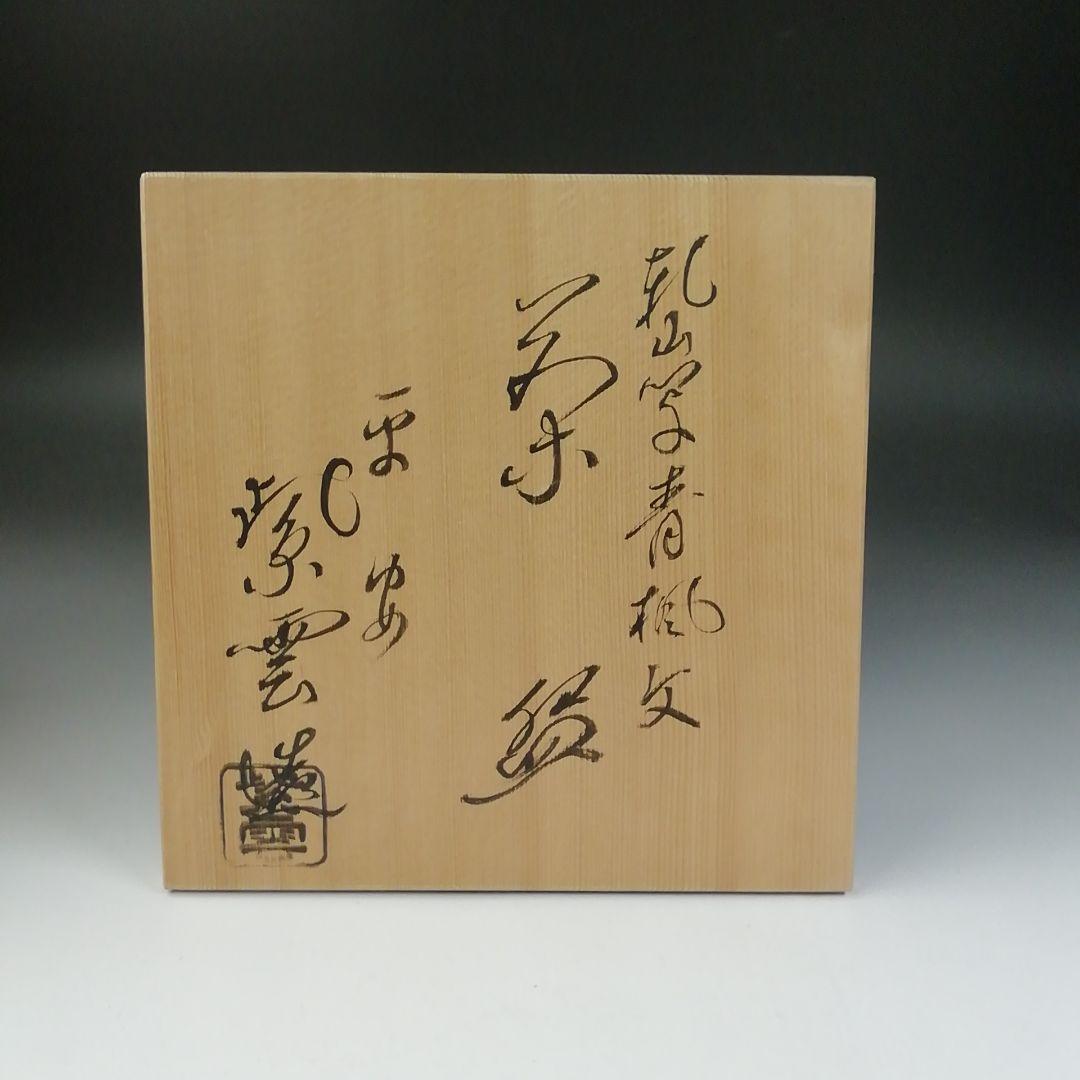 乾山写青楓文
菓 鉢
平安
紫雲